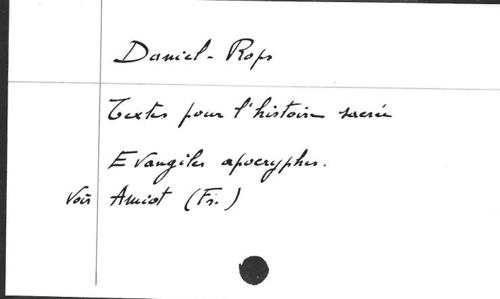 Daniel-Rops
Textes pour l'histoire sacrée
Evangiles apocryphes.
Voir Amiot (Fr.)